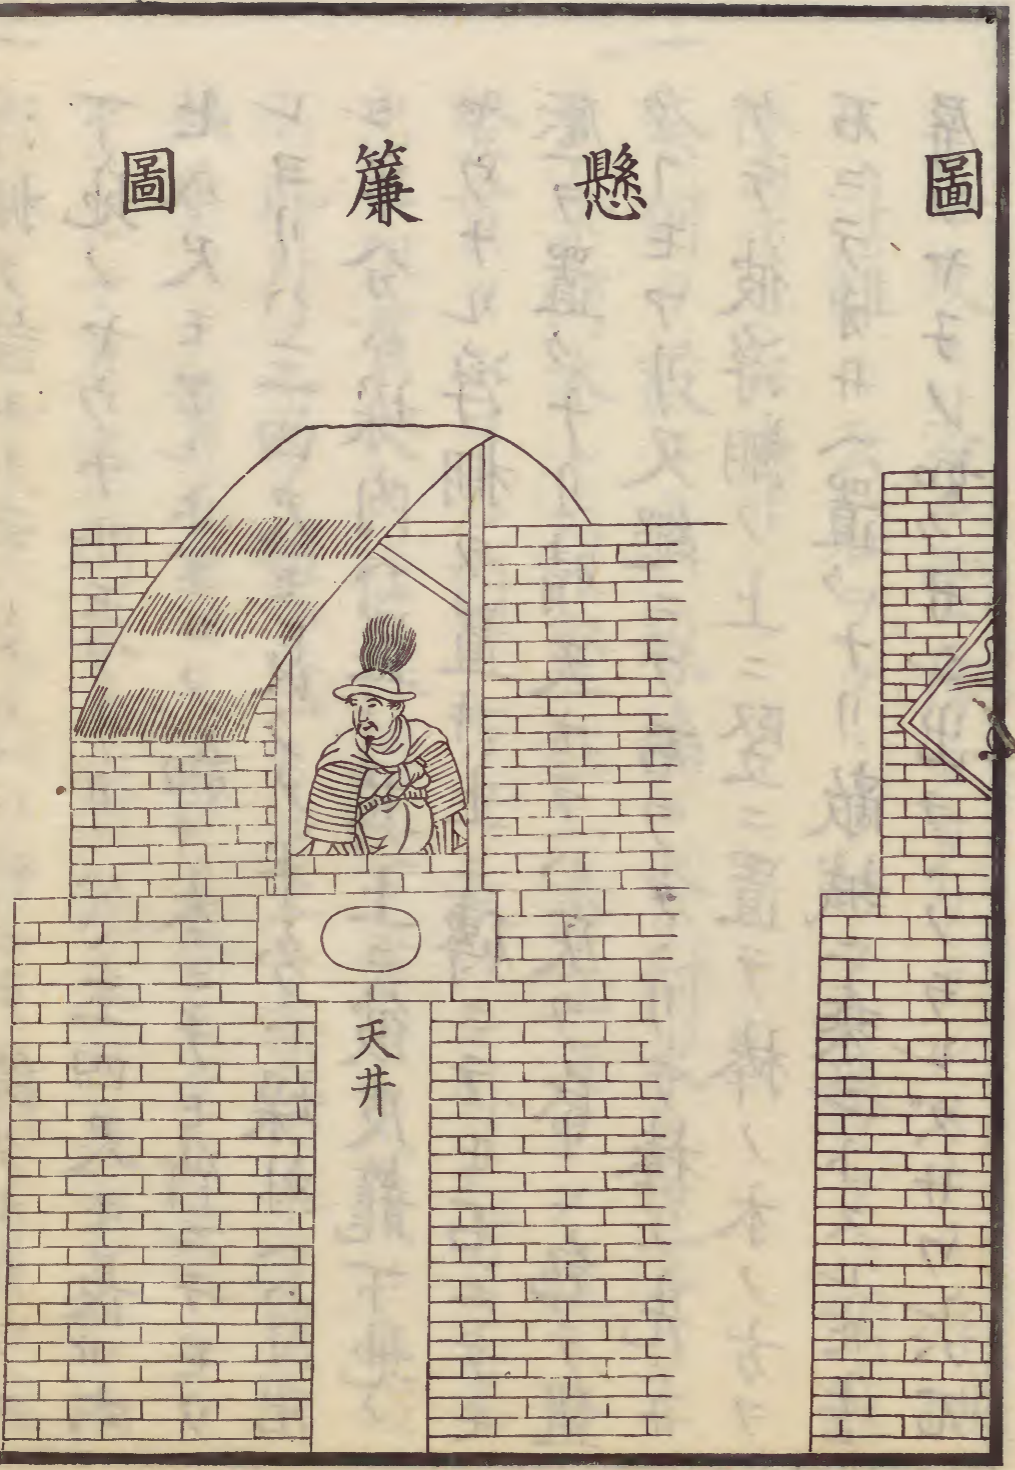 圖
懸簾圖
天井